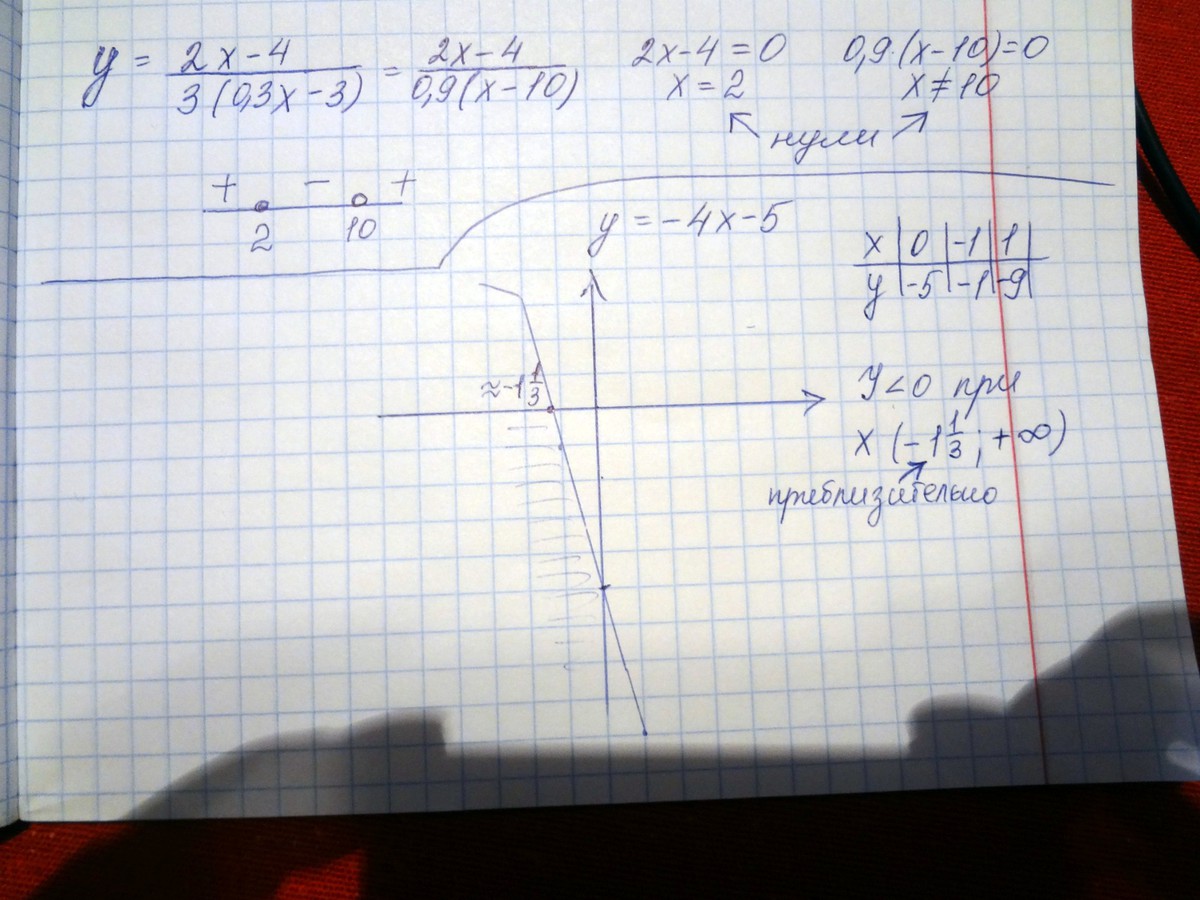 y = (2x-4)/(3(0,3x-3)) = (2x-4)/(0,9(x-10))
2x-4=0
x=2
0,9·(x-10)=0
x≠10
нули
+ - +
2 10
y=-4x-5
x | 0 | -1 | 1 |
y | -5 | -1 | -9 |
≈-1 1/3
y<0 при
x (-1 1/3; +∞)
приблизительно